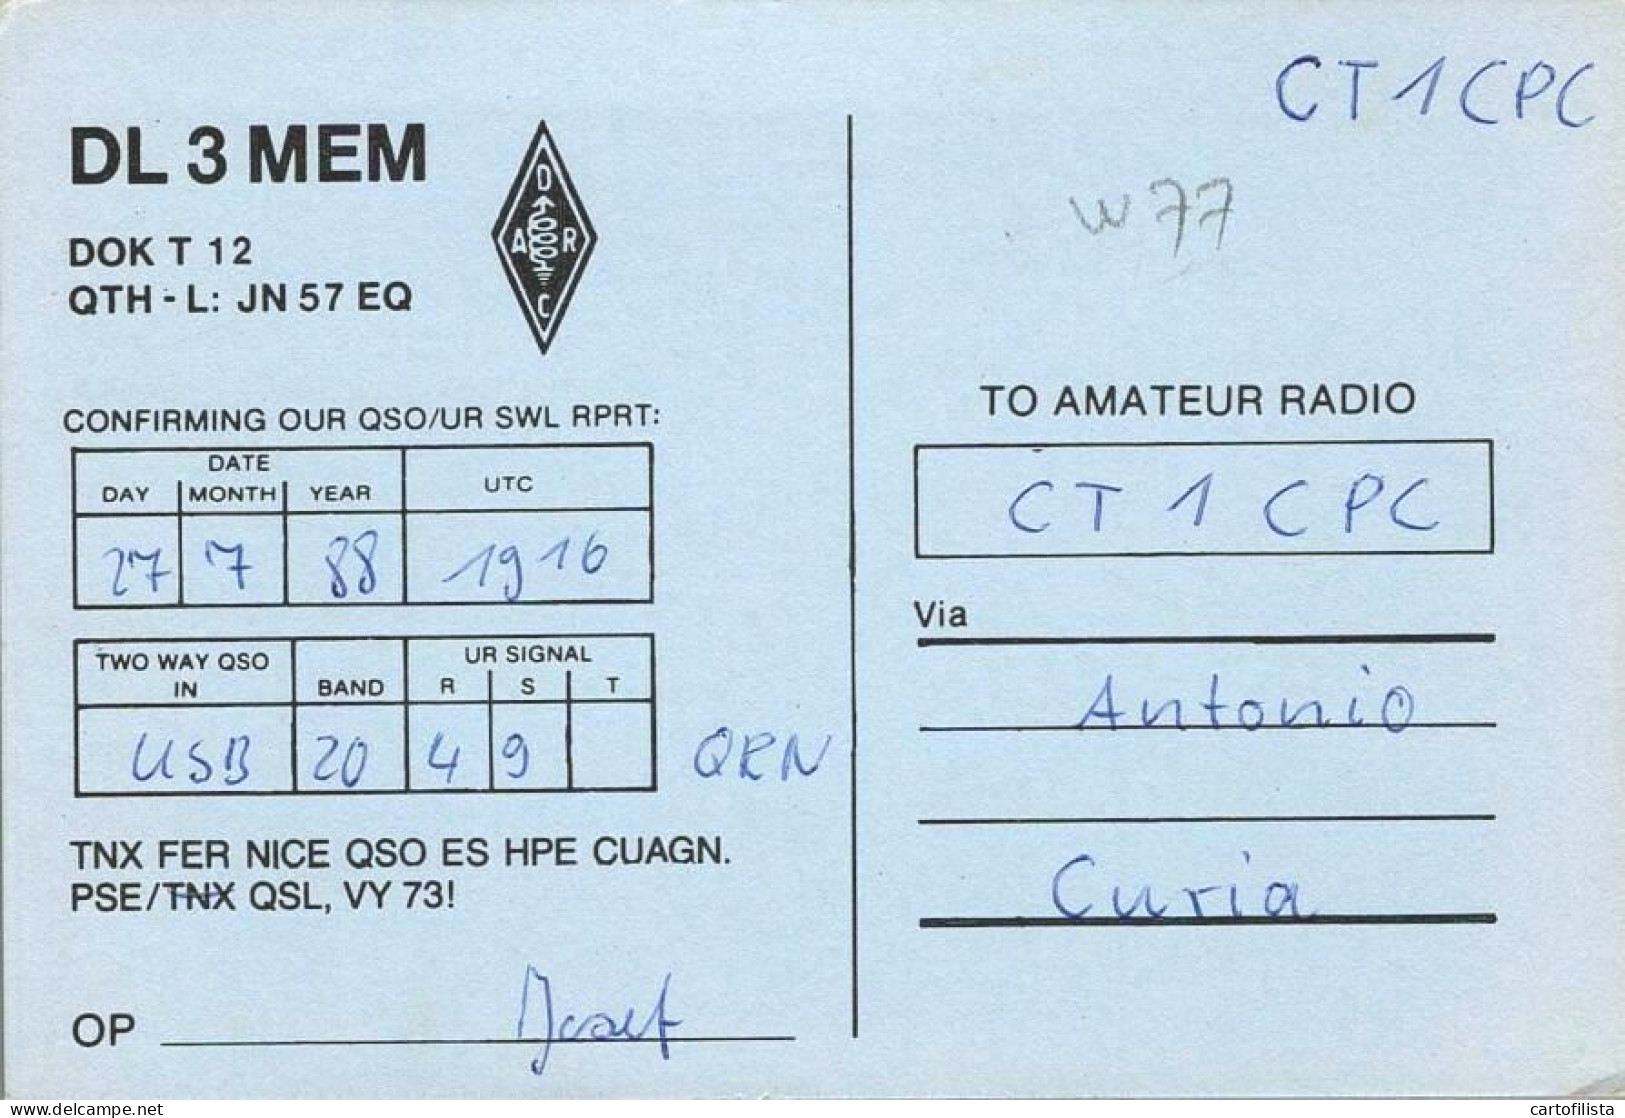 CT1CPC
DL 3 MEM
W77
DOK T 12
QTH - L: JN 57 EQ
D
A R
C
CONFIRMING OUR QSO/UR SWL RPRT:
DATE
DAY MONTH YEAR UTC
27 7 88 1916
TWO WAY QSO IN BAND UR SIGNAL
R S T
USB 20 4 9 QRN
TNX FER NICE QSO ES HPE CUAGN.
PSE/TNX QSL, VY 73!
OP Josef
TO AMATEUR RADIO
CT 1 CPC
Via
Antonio
Curia
www.delcampe.net
cartofilista